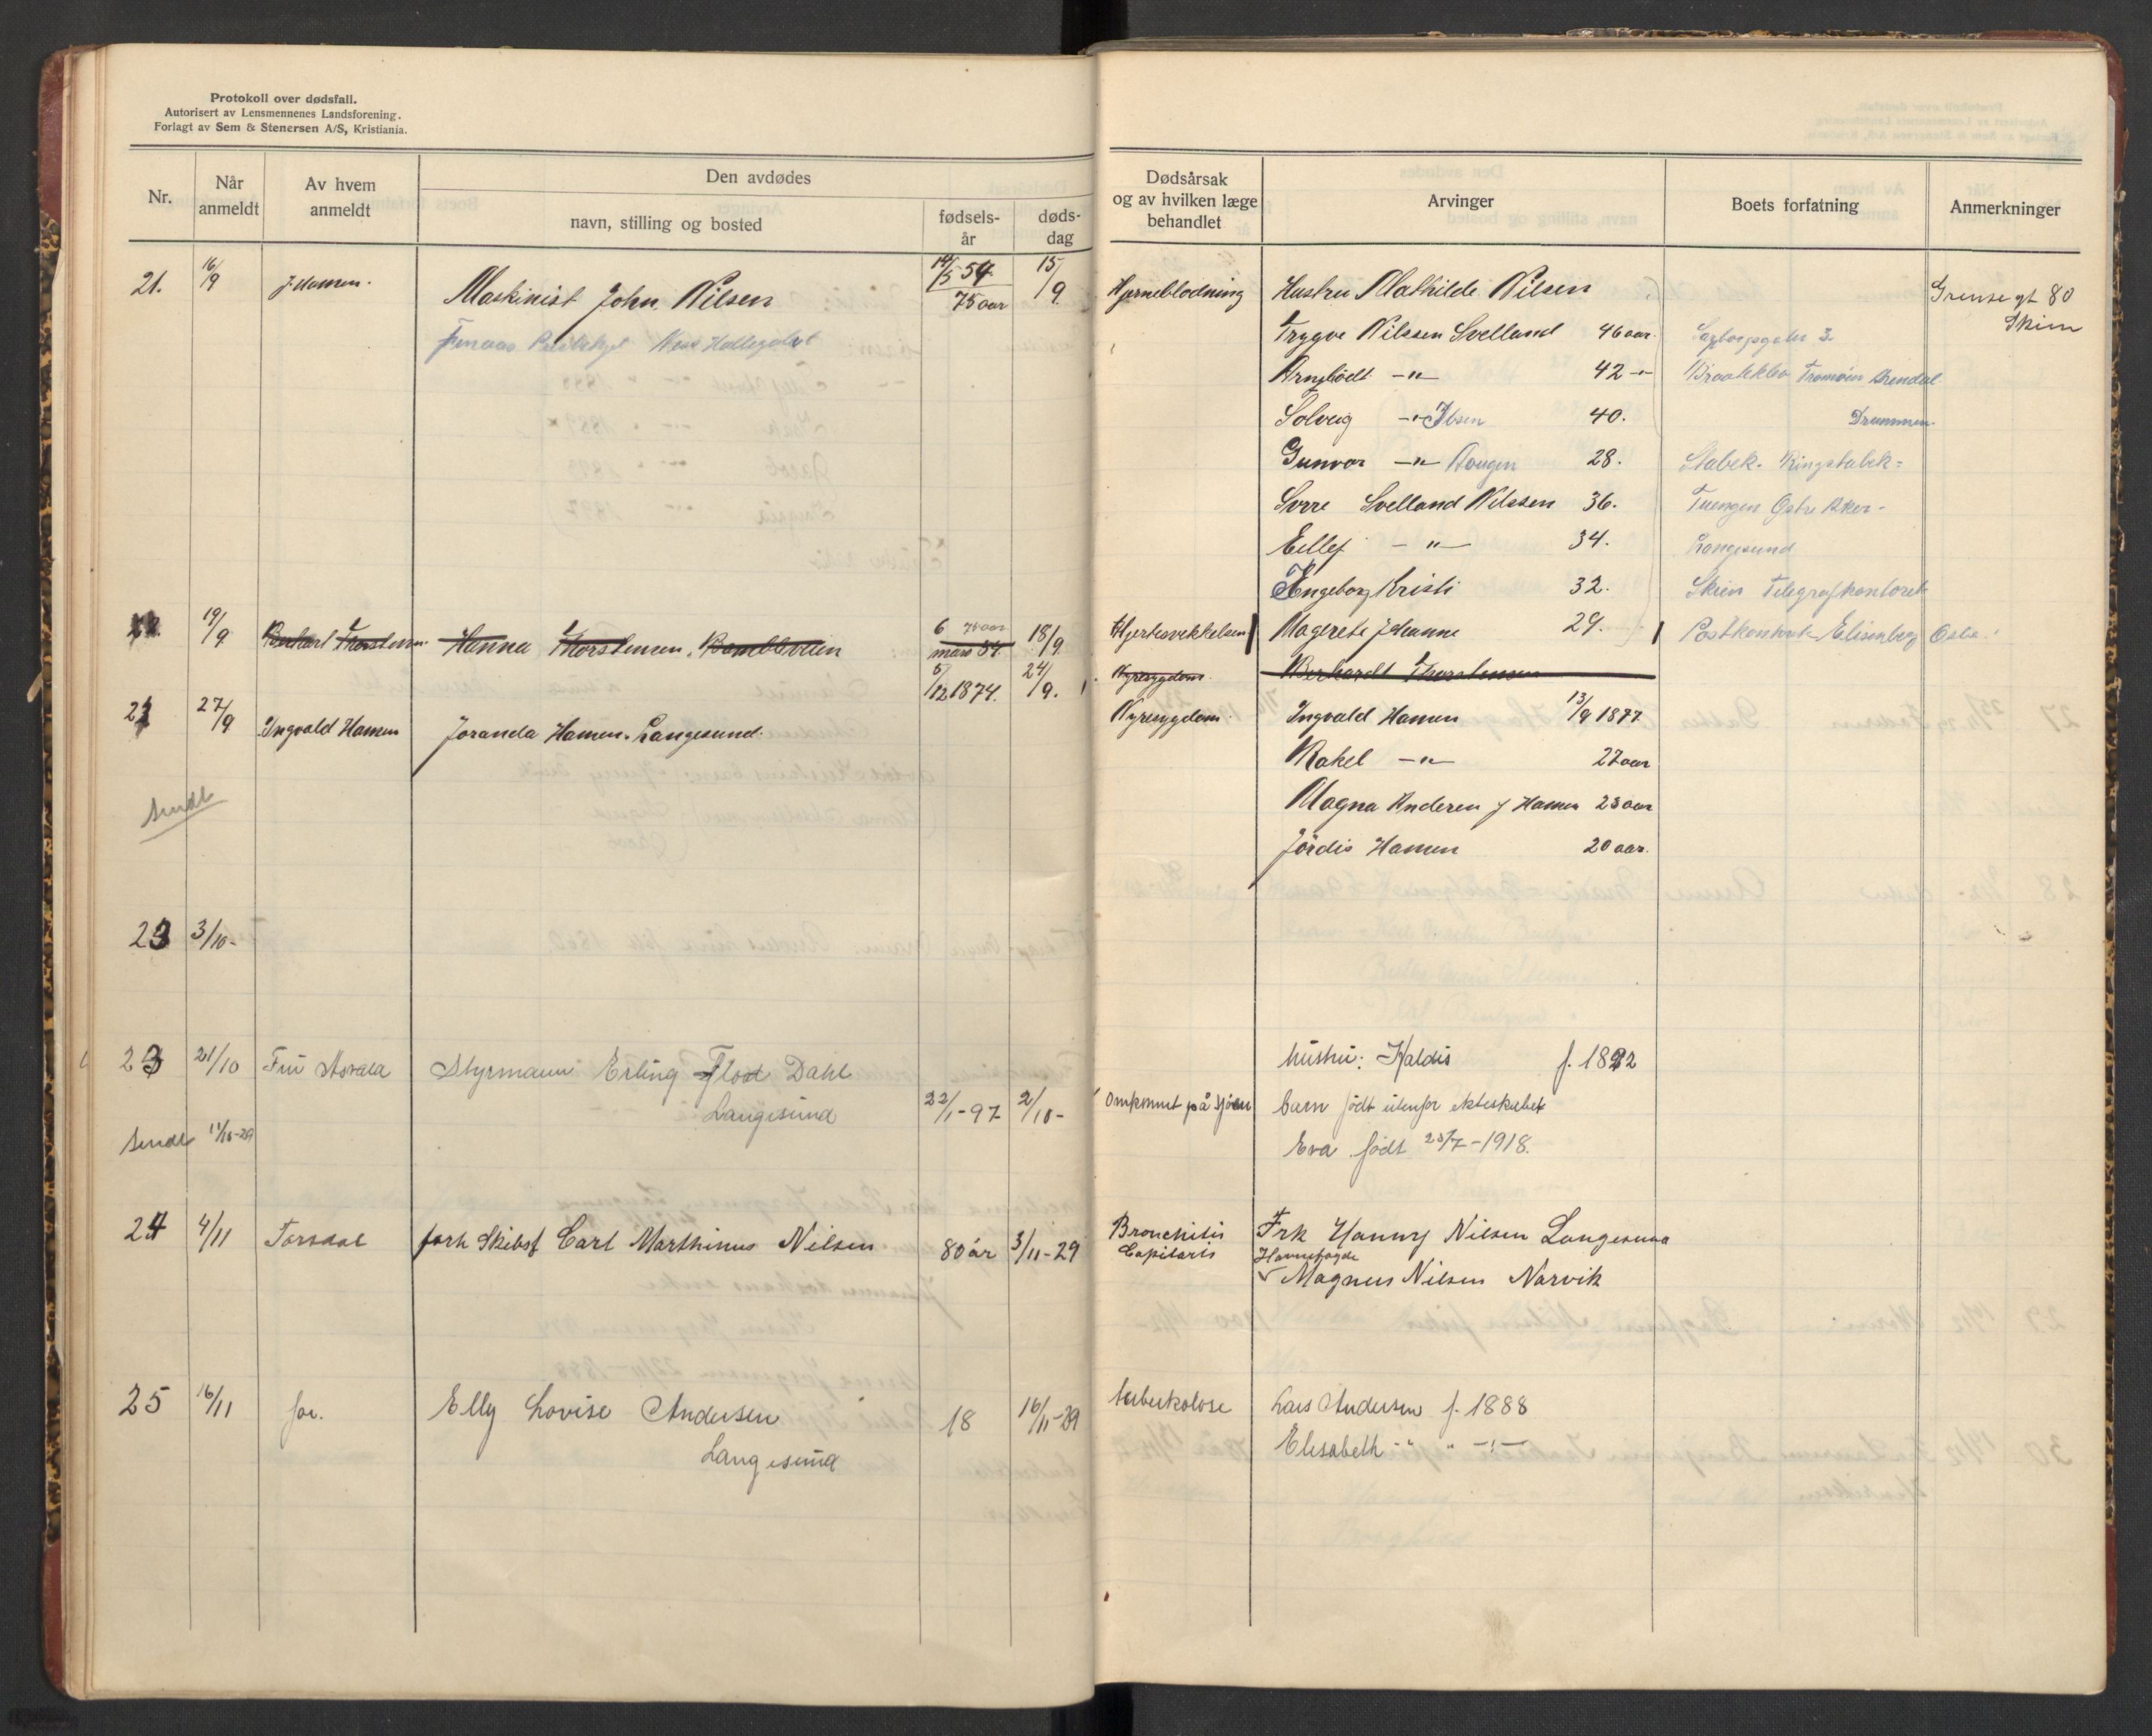 Protokoll over dødsfall.
Autorisert av Lensmennenes Landsforening.
Forlagt av Sem & Stenersen A/S, Kristiania.
Nr.
Når anmeldt
Av hvem anmeldt
Den avdødes
navn, stilling og bosted
fødsels-år
døds-dag
Dødsårsak og av hvilken læge behandlet
Arvinger
Boets forfatning
Anmerkninger
21. 16/9 Maskinist John. Nilsen 14/5 54 15/9 Hjerneblødning Hustru Mathilde Nilsen Grense gt 80
75 aar Skien
Trygve Nilssen Svelland 46 aar.
Arngbödt -"- 42 -"- Tromøen Arendal
Solveig -"- Ibsen 40. Drammen.
Gunvor -"- Hougen 28. Stabek. Ringstabek
Svrre Svelland Nilssen 36. Tuengen Østre Aker-
Eilef -"- 34. Langesund
Ingeborg Kristi 32. Skien Telegrafkontoret
19/9 Berhart Thorstensen Hanna Thorstensen, Bambleveien 6 mars 54 75 aar 18/9 Hjertesvekkelsen Magrete Johanne 29. Postkontoret Elisenberg Oslo
Nyresygdom. Berhardt Thorstensen
27/9 Ingvald Hansen Joranda Hansen. Langesund. 5/12 1874. 24/9. Nyresygdom. Ingvald Hansen 13/9 1877
Rakel -"- 27 aar
Sendt Magna Andersen f Hansen 23 aar
Jördis Hansen 20 aar.
23 3/10-
23 21/10 Fru Asvald Styrmann Erling Flod Dahl hustru: Haldis f. 1892
Langesund 22/1-97 2/10- Omkommet på sjøen barn født utenfor ekteskabet
Sendt 11/10-29 Eva født 23/7-1918.
24 4/11 Torsdal forh Skibsf Carl Marthinus Nilsen 80 år 3/11-29 Bronchitis Capilaris Frk Hanny Nilsen Langesund
Havnefogde Magnus Nilsen Narvik
25 16/11 for. Elly Lovise Andersen 18 16/11-29 tuberkolose Lars Andersen f. 1888
Langesund Elisabeth -"- " -"-